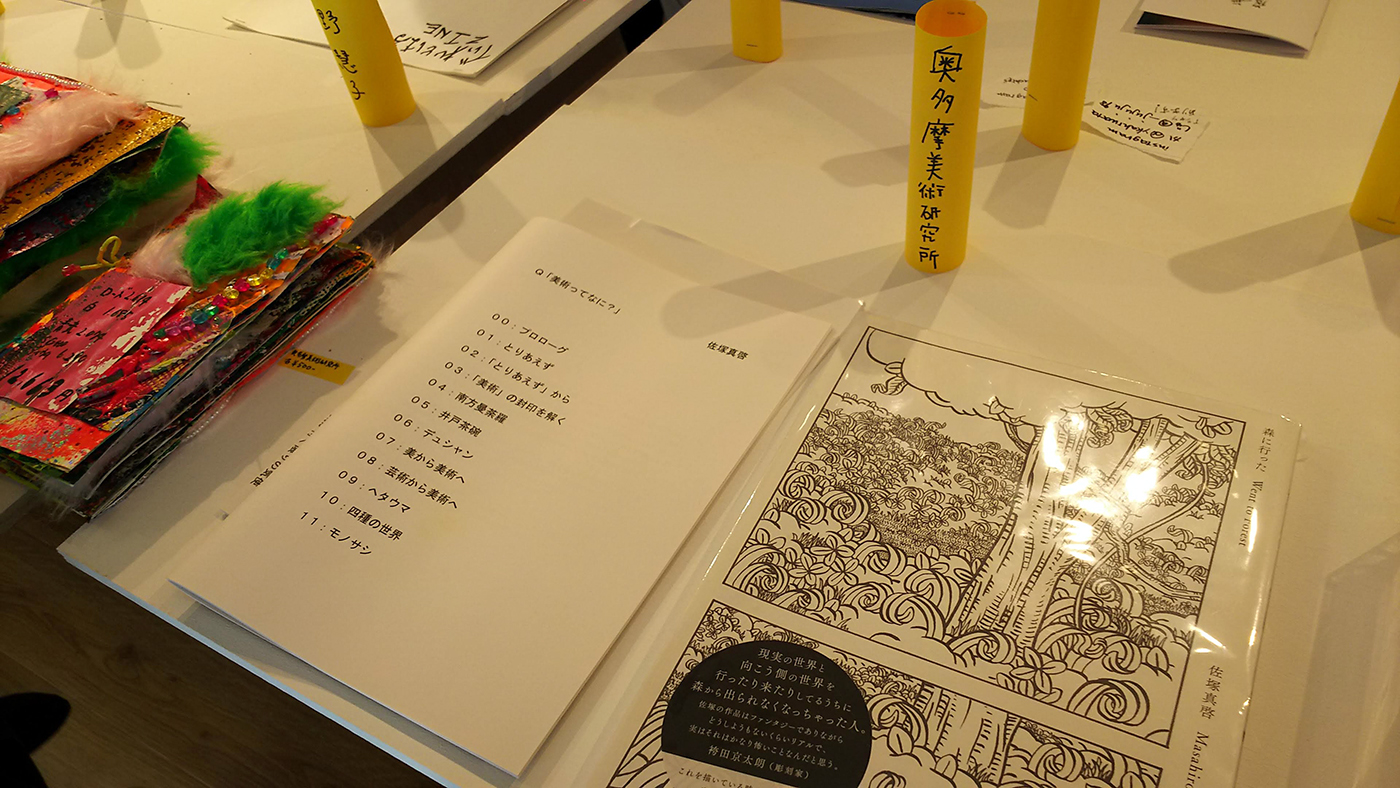 野慧子
ZINE
奥多摩美術研究所
instagram
Q「美術ってなに？」
佐塚真啓
００：プロローグ
０１：とりあえず
０２：「とりあえず」から
０３：「美術」の封印を解く
０４：南方曼荼羅
０５：井戸茶碗
０６：デュシャン
０７：美から美術へ
０８：芸術から美術へ
０９：ヘタウマ
１０：四種の世界
１１：モノサシ
森に行った Went to forest
佐塚真啓 Masahiro
現実の世界と
向こう側の世界を
行ったり来たりしてるうちに
森から出られなくなっちゃった人。
佐塚の作品はファンタジーでありながら
どうしようもないくらいリアルで、
実はそれはかなり怖いことなんだと思う。
袴田京太朗（彫刻家）
これを描いている時